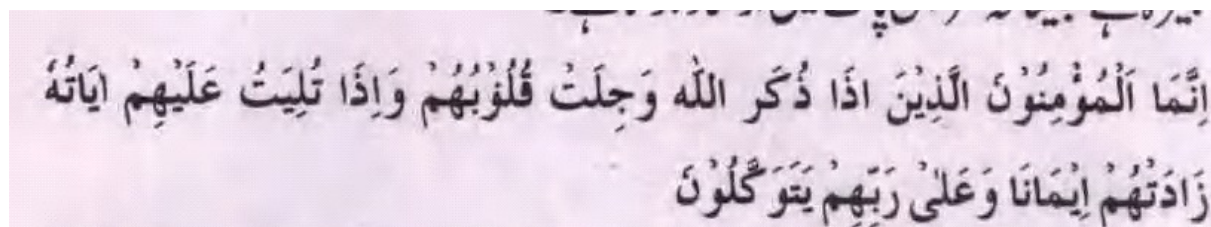 اِنَّمَا اَلْمُؤْمِنُوْنَ الَّذِيْنَ اذَا ذُكَر اللّٰه وَجِلَتْ قُلُوْبُهُمْ وَاِذَا تُلِيَتُ عَلَيْهِمْ ايَاتُهٗ
زَادَتْهُمْ اِيْمَانَا وَعَلىٰ رَبِّهِمْ يَتَوَكَّلُوْنَ